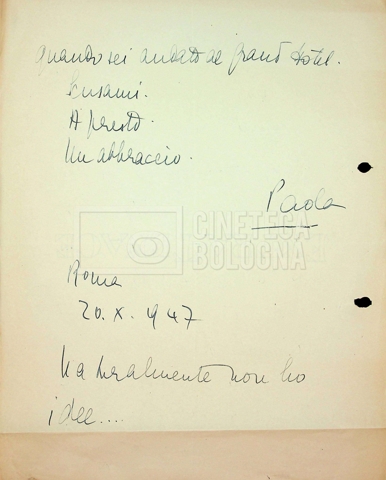 quando sei andato al grand Hotel.
Scusami.
A presto.
Un abbraccio.
Paola
CINETECA
BOLOGNA
Roma
20.X.1947
Naturalmente non ho
idee....